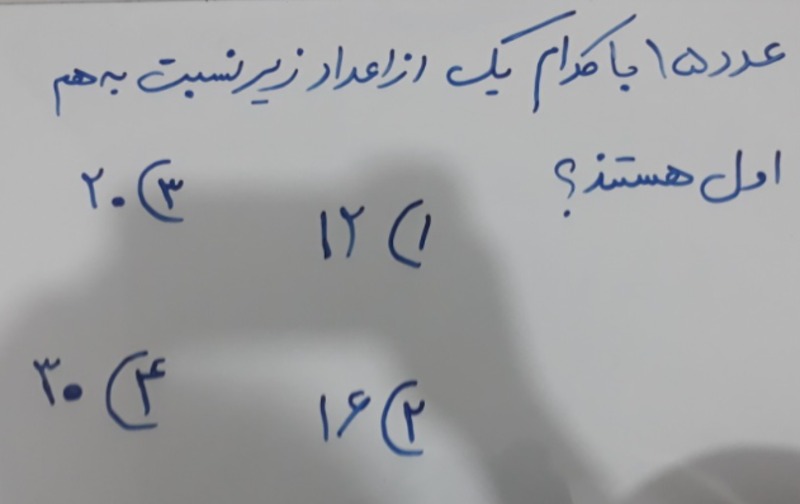 عدد ۱۵ با کدام یک از اعداد زیر نسبت به هم
اول هستند؟
۱) ۱۲
۳) ۲۰
۲) ۱۶
۴) ۳۰